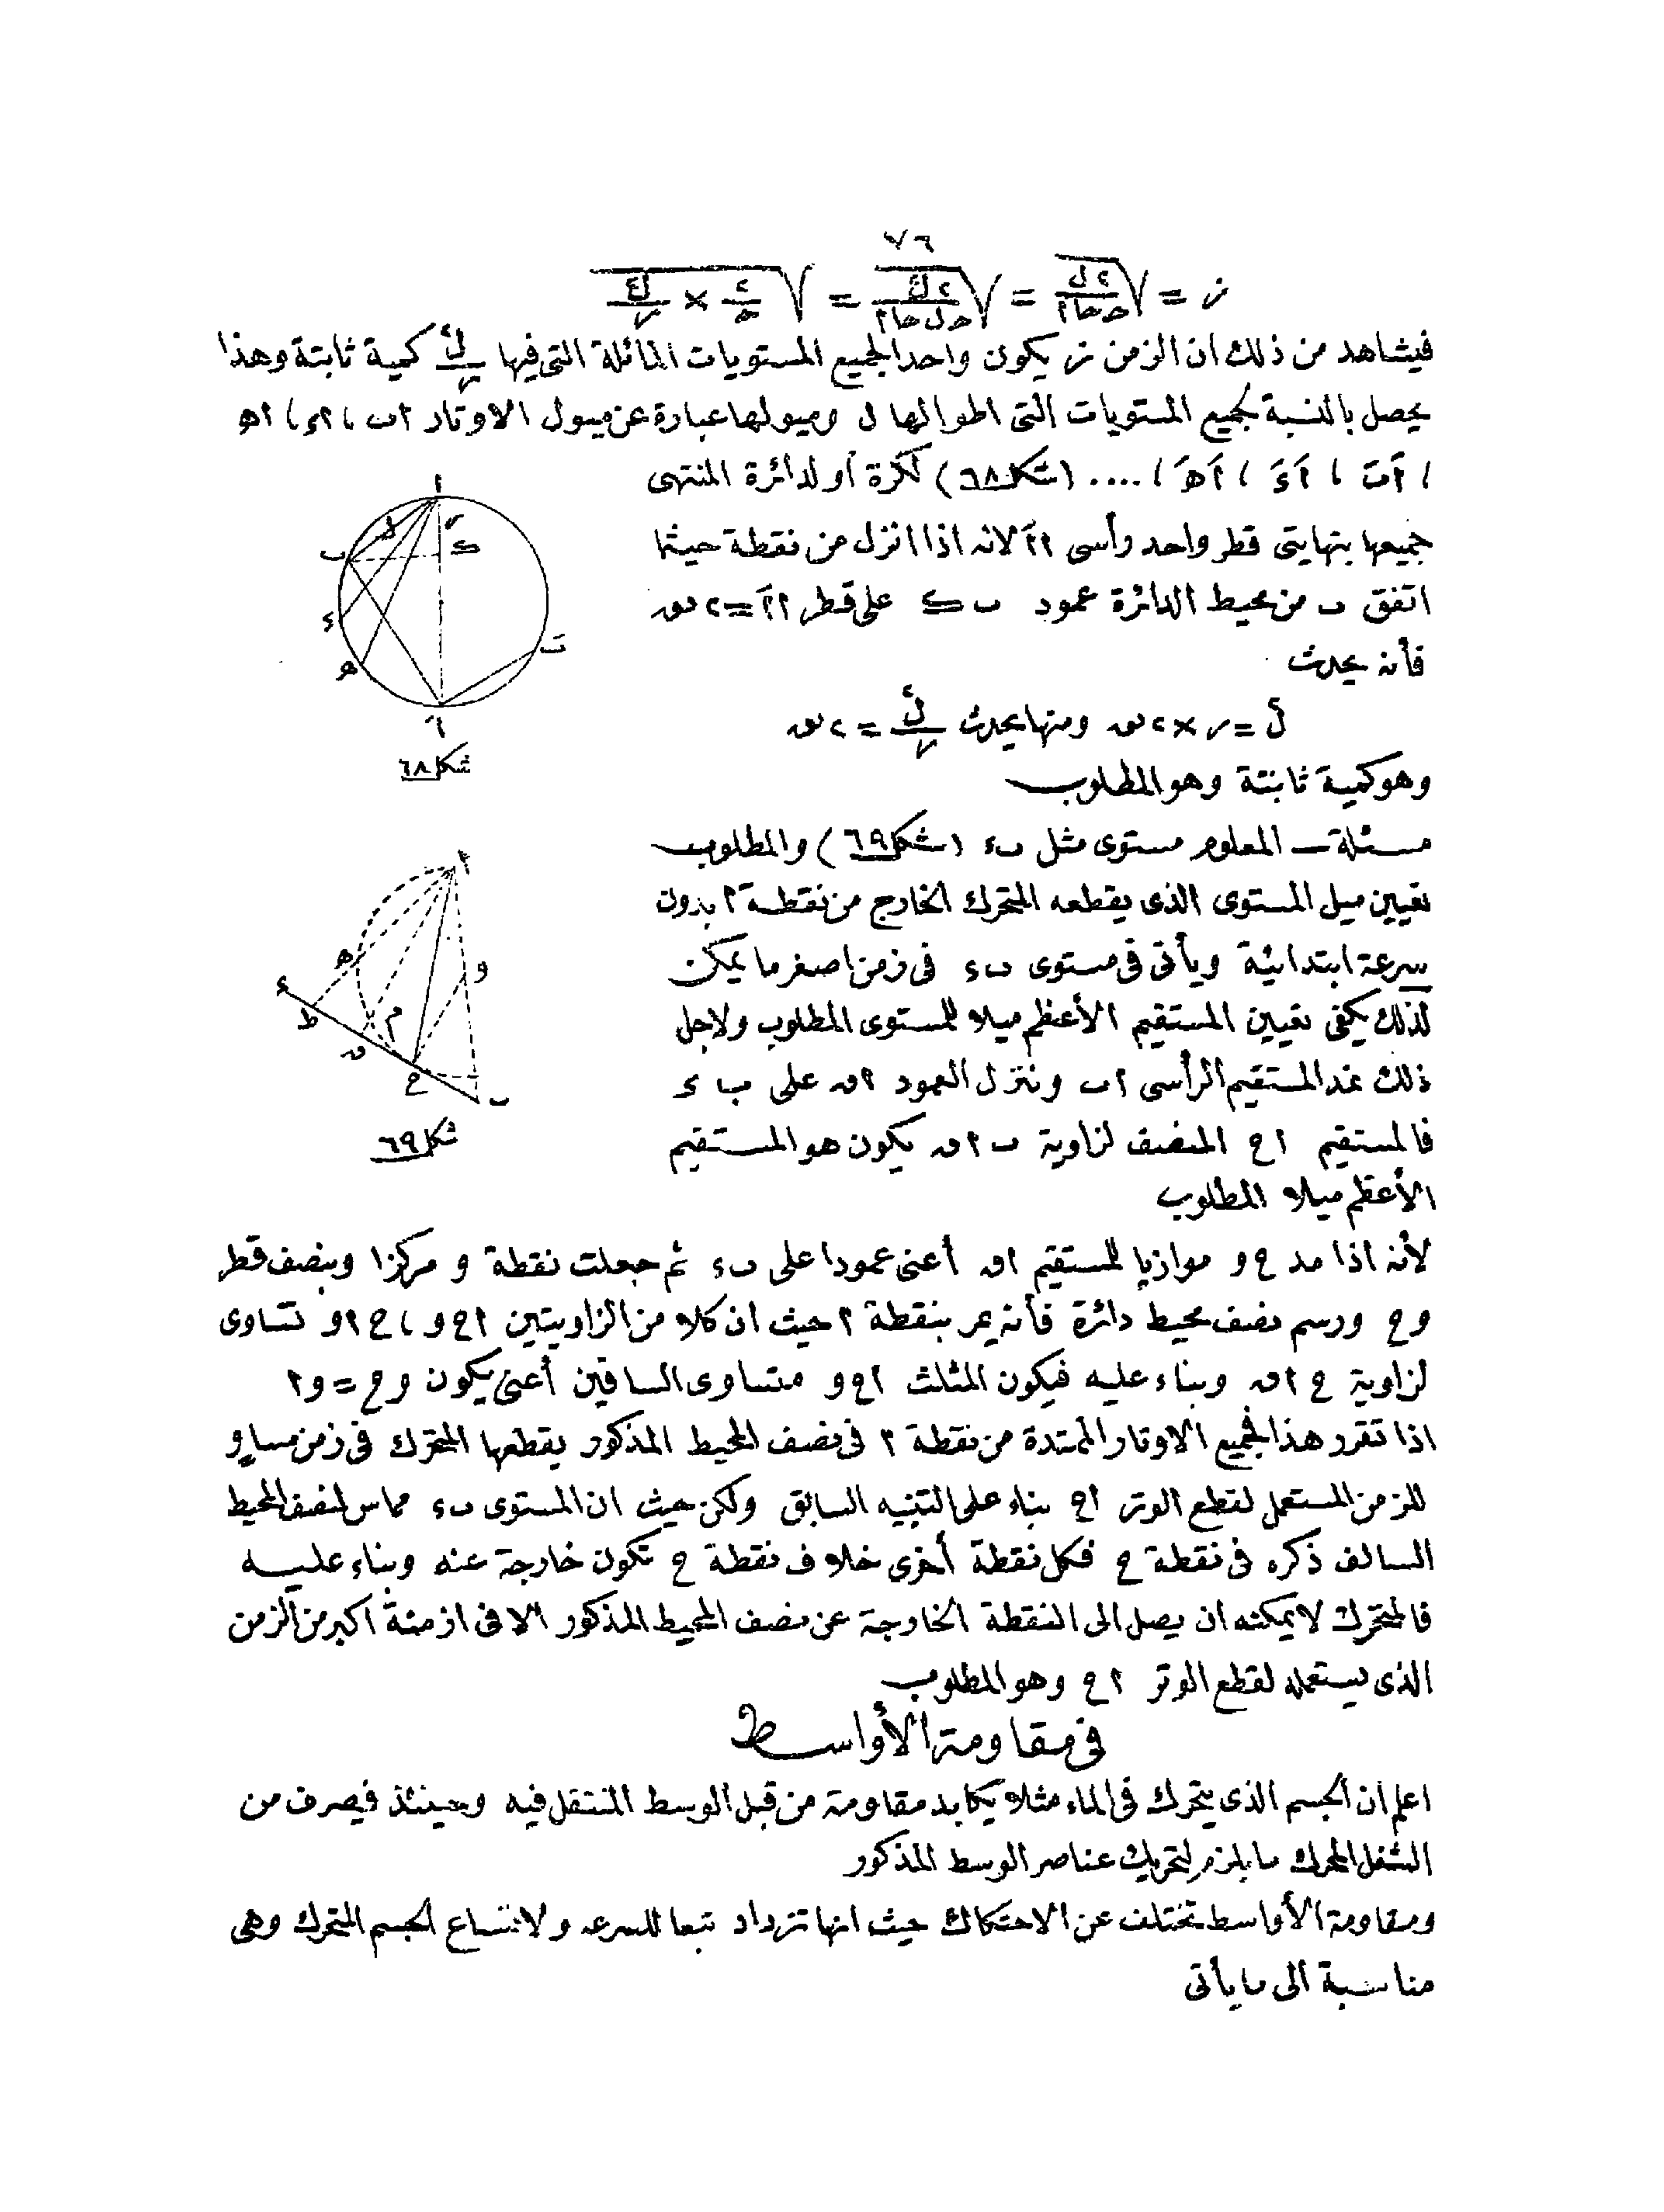 ٧٦
ز = √(٢ل / حـ حا ٢) = √(٢ل٢ / حـ ل حا ٢) = √(٢ / حـ × ل٢ / ر)
فيشاهد من ذلك ان الزمن ز يكون واحدا لجميع المستويات المائلة التى فيها ل٢/ر كمية ثابتة وهذا
يحصل بالنسبة لجميع المستويات التى اطوالها ل وميولها عبارة عن ميول الاوتار ا ب ، ا ء ، ا ھ
، اَ بَ ، اَ ءَ ، اَ ھَ ، .... (شكل ٦٨) لكرة أو لدائرة المنتهى
جميعها بنهايتى قطر واحد رأسى ا اَ لانه اذا انزل من نقطة حيثما
اتفق ب من محيط الدائرة عمود ب ك على قطر ا اَ = ٢ نق
فأنه يحدث
ل٢ = ر × ٢ نق ومنها يحدث ل٢/ر = ٢ نق
وهو كمية ثابتة وهو المطلوب
شكل ٦٨
مسئلة ــ المعلوم مستوى مثل ب ء (شكل ٦٩) والمطلوب
تعيين ميل المستوى الذى يقطعه المتحرك الخارج من نقطة ا بدون
سرعة ابتدائية ويأتى فى مستوى ب ء فى زمن اصغر ما يمكن
لذلك يكفى تعيين المستقيم الأعظم ميلا للمستوى المطلوب ولاجل
ذلك نمد المستقيم الرأسى ا ب وننزل العمود ا ن على ب ء
فالمستقيم ا ح المنصف لزاوية ب ا ن يكون هو المستقيم
الأعظم ميلا المطلوب
شكل ٦٩
لأنه اذا مد ح و موازيا للمستقيم ا ن أعنى عمودا على ب ء ثم جعلت نقطة و مركزا وبنصف قطر
و ح ورسم نصف محيط دائرة فأنه يمر بنقطة ا حيث ان كلا من الزاويتين ا ح و ، ح ا و تساوى
لزاوية ح ا ن وبناء عليه فيكون المثلث ا ح و متساوى الساقين أعنى يكون و ح = و ا
اذا تقرر هذا فجميع الاوتار الممتدة من نقطة ا فى نصف المحيط المذكور يقطعها المتحرك فى زمن مساو
للزمن المستعمل لقطع الوتر ا ح بناء على التنبيه السابق ولكن حيث ان المستوى ب ء مماس لنصف المحيط
السالف ذكره فى نقطة ح فكل نقطة أخرى خلاف نقطة ح تكون خارجة عنه وبناء عليه
فالمتحرك لا يمكنه ان يصل الى النقطة الخارجة عن نصف المحيط المذكور الا فى ازمنة اكبر من الزمن
الذى يستعمله لقطع الوتر ا ح وهو المطلوب
فى مقاومة الأواسط
اعلم ان الجسم الذى يتحرك فى الماء مثلا يكابد مقاومة من قبل الوسط المنتقل فيه وحينئذ فيصرف من
الشغل المحرك ما يلزم لتحريك عناصر الوسط المذكور
ومقاومة الأواسط تختلف عن الاحتكاك حيث انها تزداد تبعا للسرعه ولاتساع الجسم المتحرك وهى
مناسبة الى ما يأتى